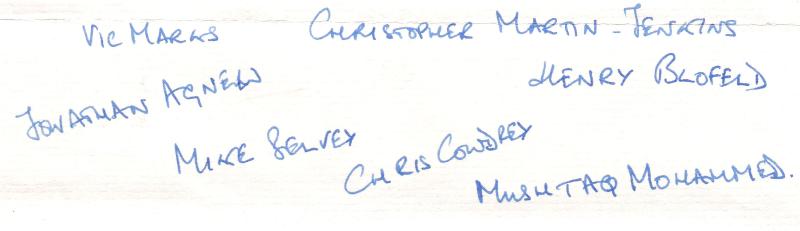 Vic Marks
Christopher Martin-Jenkins
Jonathan Agnew
Henry Blofeld
Mike Selvey
Chris Cowdrey
Mushtaq Mohammed.